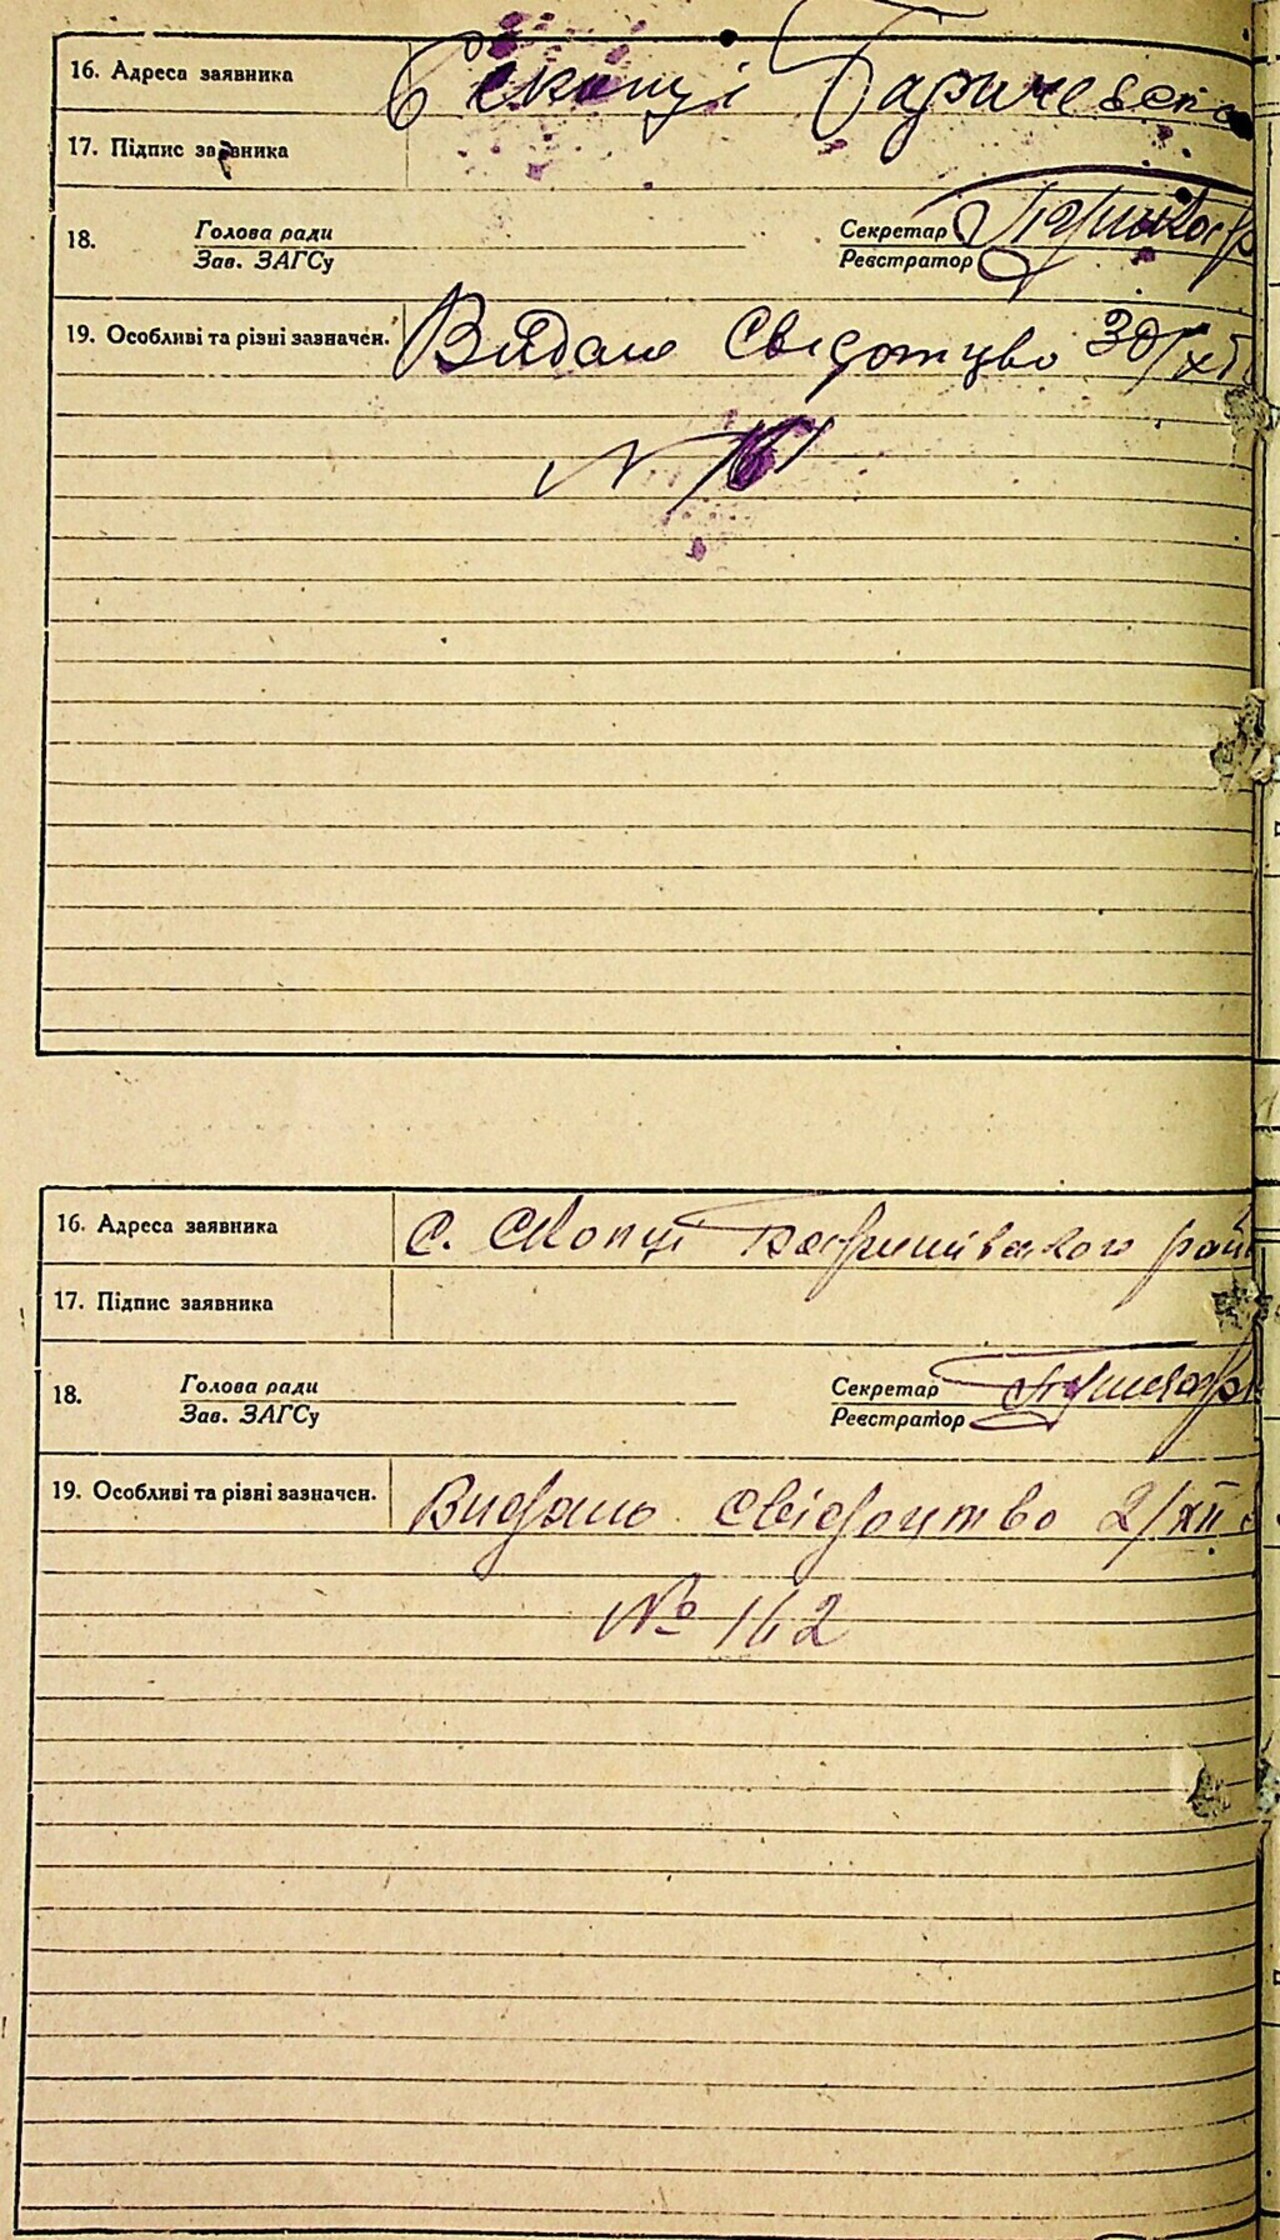 16. Адреса заявника С. Скопці Баришевсько
17. Підпис заявника
18. Голова ради Секретар
Зав. ЗАГСу Реєстратор
19. Особливі та різні зазначен. Видано Свідотцво 30/хі
N 161
16. Адреса заявника С. Скопці Баришівського рай
17. Підпис заявника
18. Голова ради Секретар
Зав. ЗАГСу Реєстратор
19. Особливі та різні зазначен. Видано свідоцтво 2/XII
№ 162